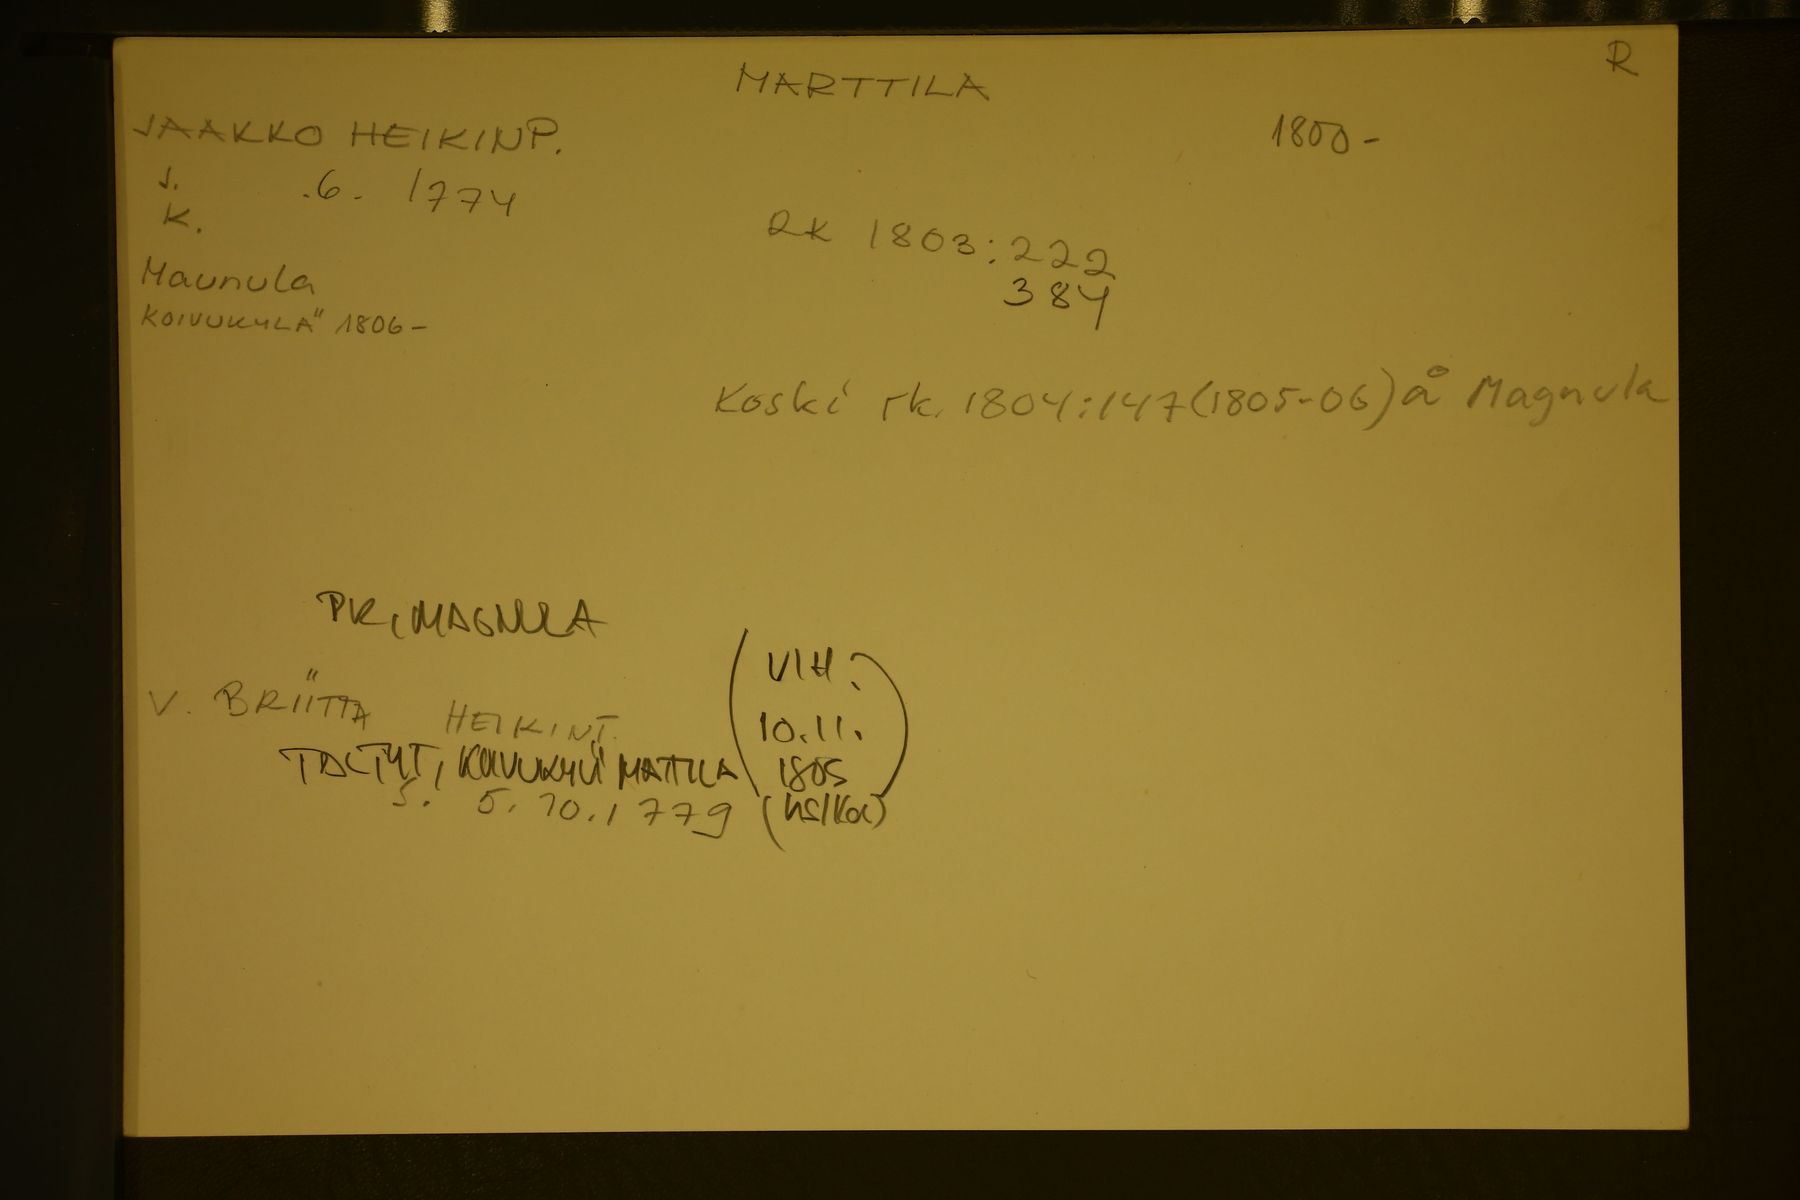 R
MARTTILA
JAAKKO HEIKINP.
1800-
s. .6. 1774
K.
RK 1803:222
384
Maunula
KOIVUKYLÄ 1806-
Koski rk. 1804:147(1805-06) å Magnula
PR, MAGNULA
V. BRIITTA HEIKINT.
TAL TYT, KOIVUKYLÄ MATTILA
S. 5.10.1779
(VIH:
10.11.
1805)